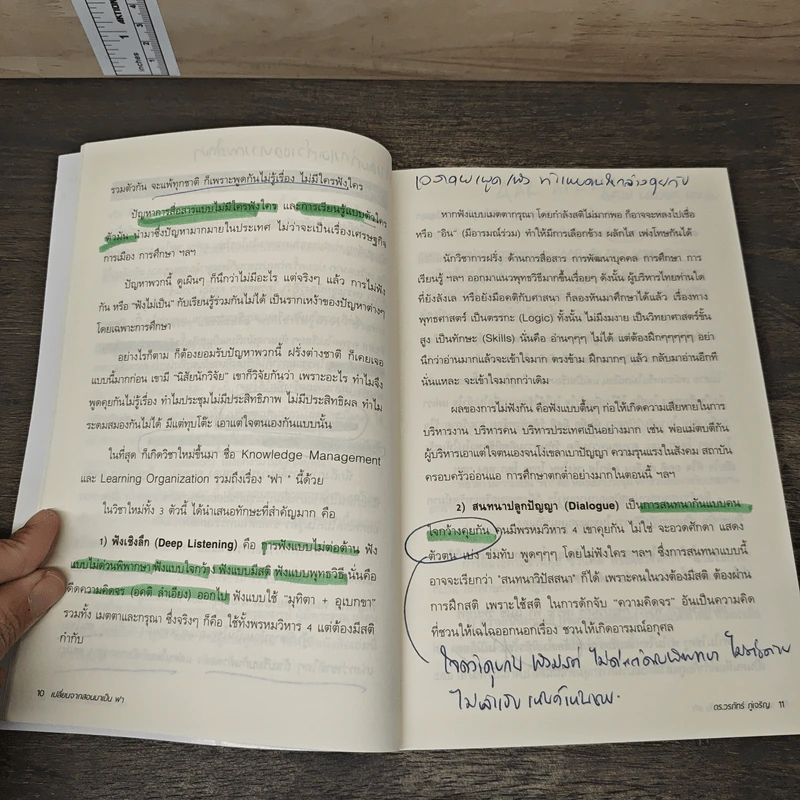 รวมตัวกัน จะแพ้ทุกชาติ ก็เพราะพูดกันไม่รู้เรื่อง ไม่มีใครฟังใคร
ปัญหาการสื่อสารแบบไม่มีใครฟังใคร และการเรียนรู้แบบตัวใคร
ตัวมัน นำมาซึ่งปัญหามากมายในประเทศ ไม่ว่าจะเป็นเรื่องเศรษฐกิจ
การเมือง การศึกษา ฯลฯ
ปัญหาพวกนี้ ดูเผินๆ ก็นึกว่าไม่มีอะไร แต่จริงๆ แล้ว การไม่ฟัง
กัน หรือ "ฟังไม่เป็น" กับเรียนรู้ร่วมกันไม่ได้ เป็นรากเหง้าของปัญหาต่างๆ
โดยเฉพาะการศึกษา
อย่างไรก็ตาม ก็ต้องยอมรับปัญหาพวกนี้ ฝรั่งต่างชาติ ก็เคยเจอ
แบบนี้มาก่อน เขามี "นิสัยนักวิจัย" เขาก็วิจัยกันว่า เพราะอะไร ทำไมจึง
พูดคุยกันไม่รู้เรื่อง ทำไมประชุมไม่มีประสิทธิภาพ ไม่มีประสิทธิผล ทำไม
ระดมสมองกันไม่ได้ มีแต่ทุบโต๊ะ เอาแต่ใจตนเองกันแบบนั้น
ในที่สุด ก็เกิดวิชาใหม่ขึ้นมา ชื่อ Knowledge Management
และ Learning Organization รวมถึงเรื่อง "ฟา" นี้ด้วย
ในวิชาใหม่ทั้ง 3 ตัวนี้ ได้นำเสนอทักษะที่สำคัญมาก คือ
1) ฟังเชิงลึก (Deep Listening) คือ การฟังแบบไม่ต่อต้าน ฟัง
แบบไม่ด่วนพิพากษา ฟังแบบใจกว้าง ฟังแบบมีสติ ฟังแบบพุทธวิธี นั่นคือ
ตีดความคิดจร (อคติ ลำเอียง) ออกไป ฟังแบบใช้ "มุทิตา + อุเบกขา"
รวมทั้ง เมตตาและกรุณา ซึ่งจริงๆ ก็คือ ใช้ทั้งพรหมวิหาร 4 แต่ต้องมีสติ
กำกับ
10 เปลี่ยนจากสอนมาเป็น ฟา
หากฟังแบบเมตตากรุณา โดยกำลังสติไม่มากพอ ก็อาจจะหลงไปเชื่อ
หรือ "อิน" (มีอารมณ์ร่วม) ทำให้มีการเลือกข้าง ผลักไส เพ่งโทษกันได้
นักวิชาการฝรั่ง ด้านการสื่อสาร การพัฒนาบุคคล การศึกษา การ
เรียนรู้ ฯลฯ ออกมาแนวพุทธวิธีมากขึ้นเรื่อยๆ ดังนั้น ผู้บริหารไทยท่านใด
ที่ยังลังเล หรือยังมีอคติกับศาสนา ก็ลองหันมาศึกษาได้แล้ว เรื่องทาง
พุทธศาสตร์ เป็นตรรกะ (Logic) ทั้งนั้น ไม่มีงมงาย เป็นวิทยาศาสตร์ชั้น
สูง เป็นทักษะ (Skills) นั่นคือ อ่านๆๆๆ ไม่ได้ แต่ต้องฝึกๆๆๆๆๆ อย่า
นึกว่าอ่านมากแล้วจะเข้าใจมาก ตรงข้าม ฝึกมากๆ แล้ว กลับมาอ่านอีกที
นั่นแหละ จะเข้าใจมากกว่าเดิม
ผลของการไม่ฟังกัน คือฟังแบบตื้นๆ ก่อให้เกิดความเสียหายในการ
บริหารงาน บริหารคน บริหารประเทศเป็นอย่างมาก เช่น พ่อแม่ตบตีกัน
ผู้บริหารเอาแต่ใจตนเองจนโง่เขลาเบาปัญญา ความรุนแรงในสังคม สถาบัน
ครอบครัวอ่อนแอ การศึกษาตกต่ำอย่างมากในตอนนี้ ฯลฯ
2) สนทนาปลูกปัญญา (Dialogue) เป็นการสนทนากันแบบคน
ใจกว้างคุยกัน คนมีพรหมวิหาร 4 เขาคุยกัน ไม่ใช่ จะอวดศักดา แสดง
ตัวตน เบ่ง ข่มทับ พูดๆๆๆ โดยไม่ฟังใคร ฯลฯ ซึ่งการสนทนาแบบนี้
อาจจะเรียกว่า "สนทนาวิปัสสนา" ก็ได้ เพราะคนในวงต้องมีสติ ต้องผ่าน
การฝึกสติ เพราะใช้สติ ในการดักจับ "ความคิดจร" อันเป็นความคิด
ที่ชวนให้เฉไฉออกนอกเรื่อง ชวนให้เกิดอารมณ์อกุศล
ดร.วรภัทร์ ภู่เจริญ 11
inches